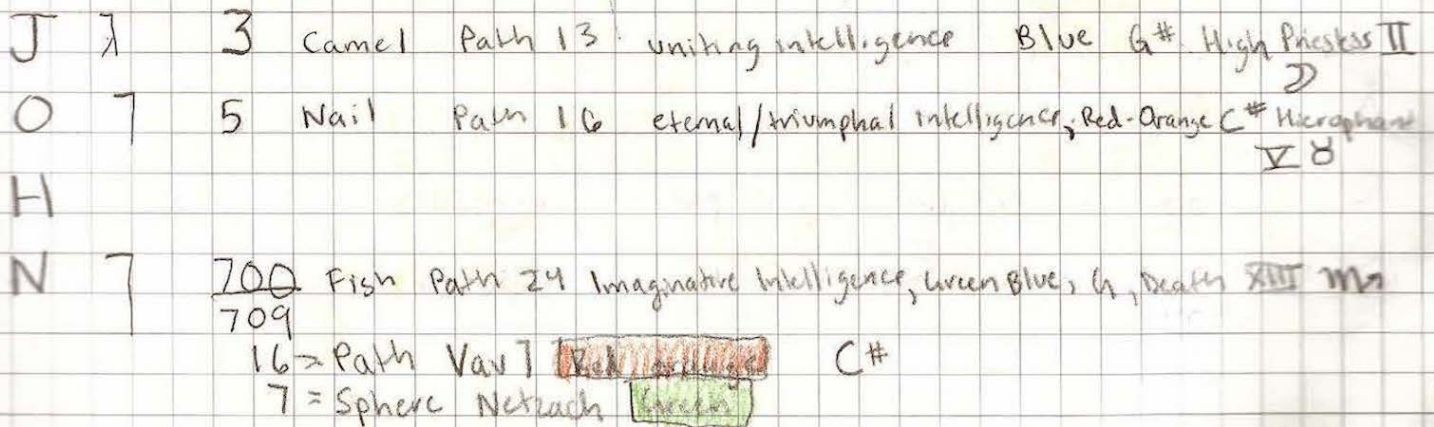 J ג 3 Camel Path 13 uniting intelligence Blue G# High Priestess II
☽
O ו 5 Nail Path 16 eternal/triumphal intelligence, Red-Orange C# Hierophant
V ♉
H
N ן 700 Fish Path 24 Imaginative Intelligence, Green Blue, G, Death XIII ♏
709
16 = Path Vav ו Red orange C#
7 = Sphere Netzach Green